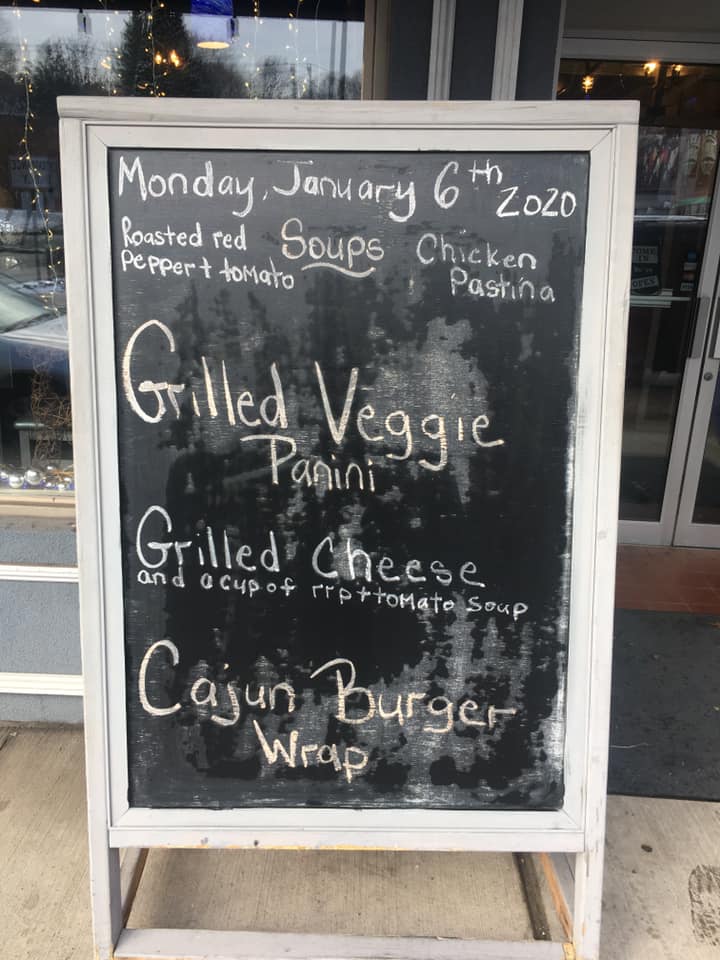 Monday, January 6th 2020
Roasted red
pepper + tomato
Soups
Chicken
Pastina
Grilled Veggie
Panini
Grilled Cheese
and a cup of rrp + tomato soup
Cajun Burger
Wrap